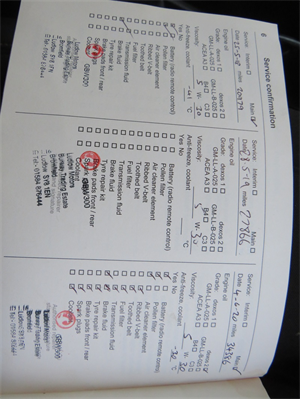 6
Service confirmation
Service: Interim □ Main
Date miles
Engine oil
Grade: dexos 1 □ dexos 2 □
GM-LL-A-025 □ GM-LL-B-025 □
ACEA A3 □ B4 □ C3 □
Viscosity: 5 W- 30
Anti-freeze, coolant °C
Yes No
Battery (radio remote control)
Pollen filter
Air cleaner element
Ribbed V-belt
Toothed belt
Fuel filter
Transmission fluid
Brake fluid
Tyre repair kit
Brake pads front / rear
GBW300
Service: Interim □ Main
Date 28.5.19 miles 27866
Engine oil
Grade: dexos 1 □ dexos 2 □
GM-LL-A-025 □ GM-LL-B-025 □
ACEA A3 □ B4 □ C3 □
Viscosity: 5 W- 30
Anti-freeze, coolant °C
Yes No
Battery (radio remote control)
Pollen filter
Air cleaner element
Ribbed V-belt
Toothed belt
Fuel filter
Transmission fluid
Brake fluid
Tyre repair kit
Brake pads front / rear
GBW300
Coolant
Ludlow Motors
Bromfield Trading Estate
Ludlow SY8 1EN
Tel: 01584 874444
Service: Interim □ Main
miles 34386
Engine oil
Grade: dexos 1 □ dexos 2
GM-LL-A-025 □ GM-LL-B-025 □
ACEA A3 □ B4 □ C3 □
Viscosity: 5 W- 30
Anti-freeze, coolant °C
Yes No
Battery (radio remote control)
Pollen filter
Air cleaner element
Ribbed V-belt
Toothed belt
Fuel filter
Transmission fluid
Brake fluid
Tyre repair kit
Brake pads front / rear
Spark plugs
Coolant